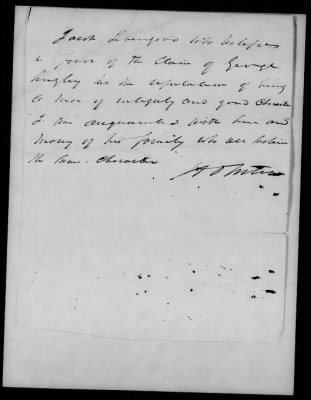 Jacob Livengood who testifies
in favor of the Claim of George
has the reputation of being
a man of integrity and good Character
I am acquainted with him and
many of his family who all sustain
the same Character